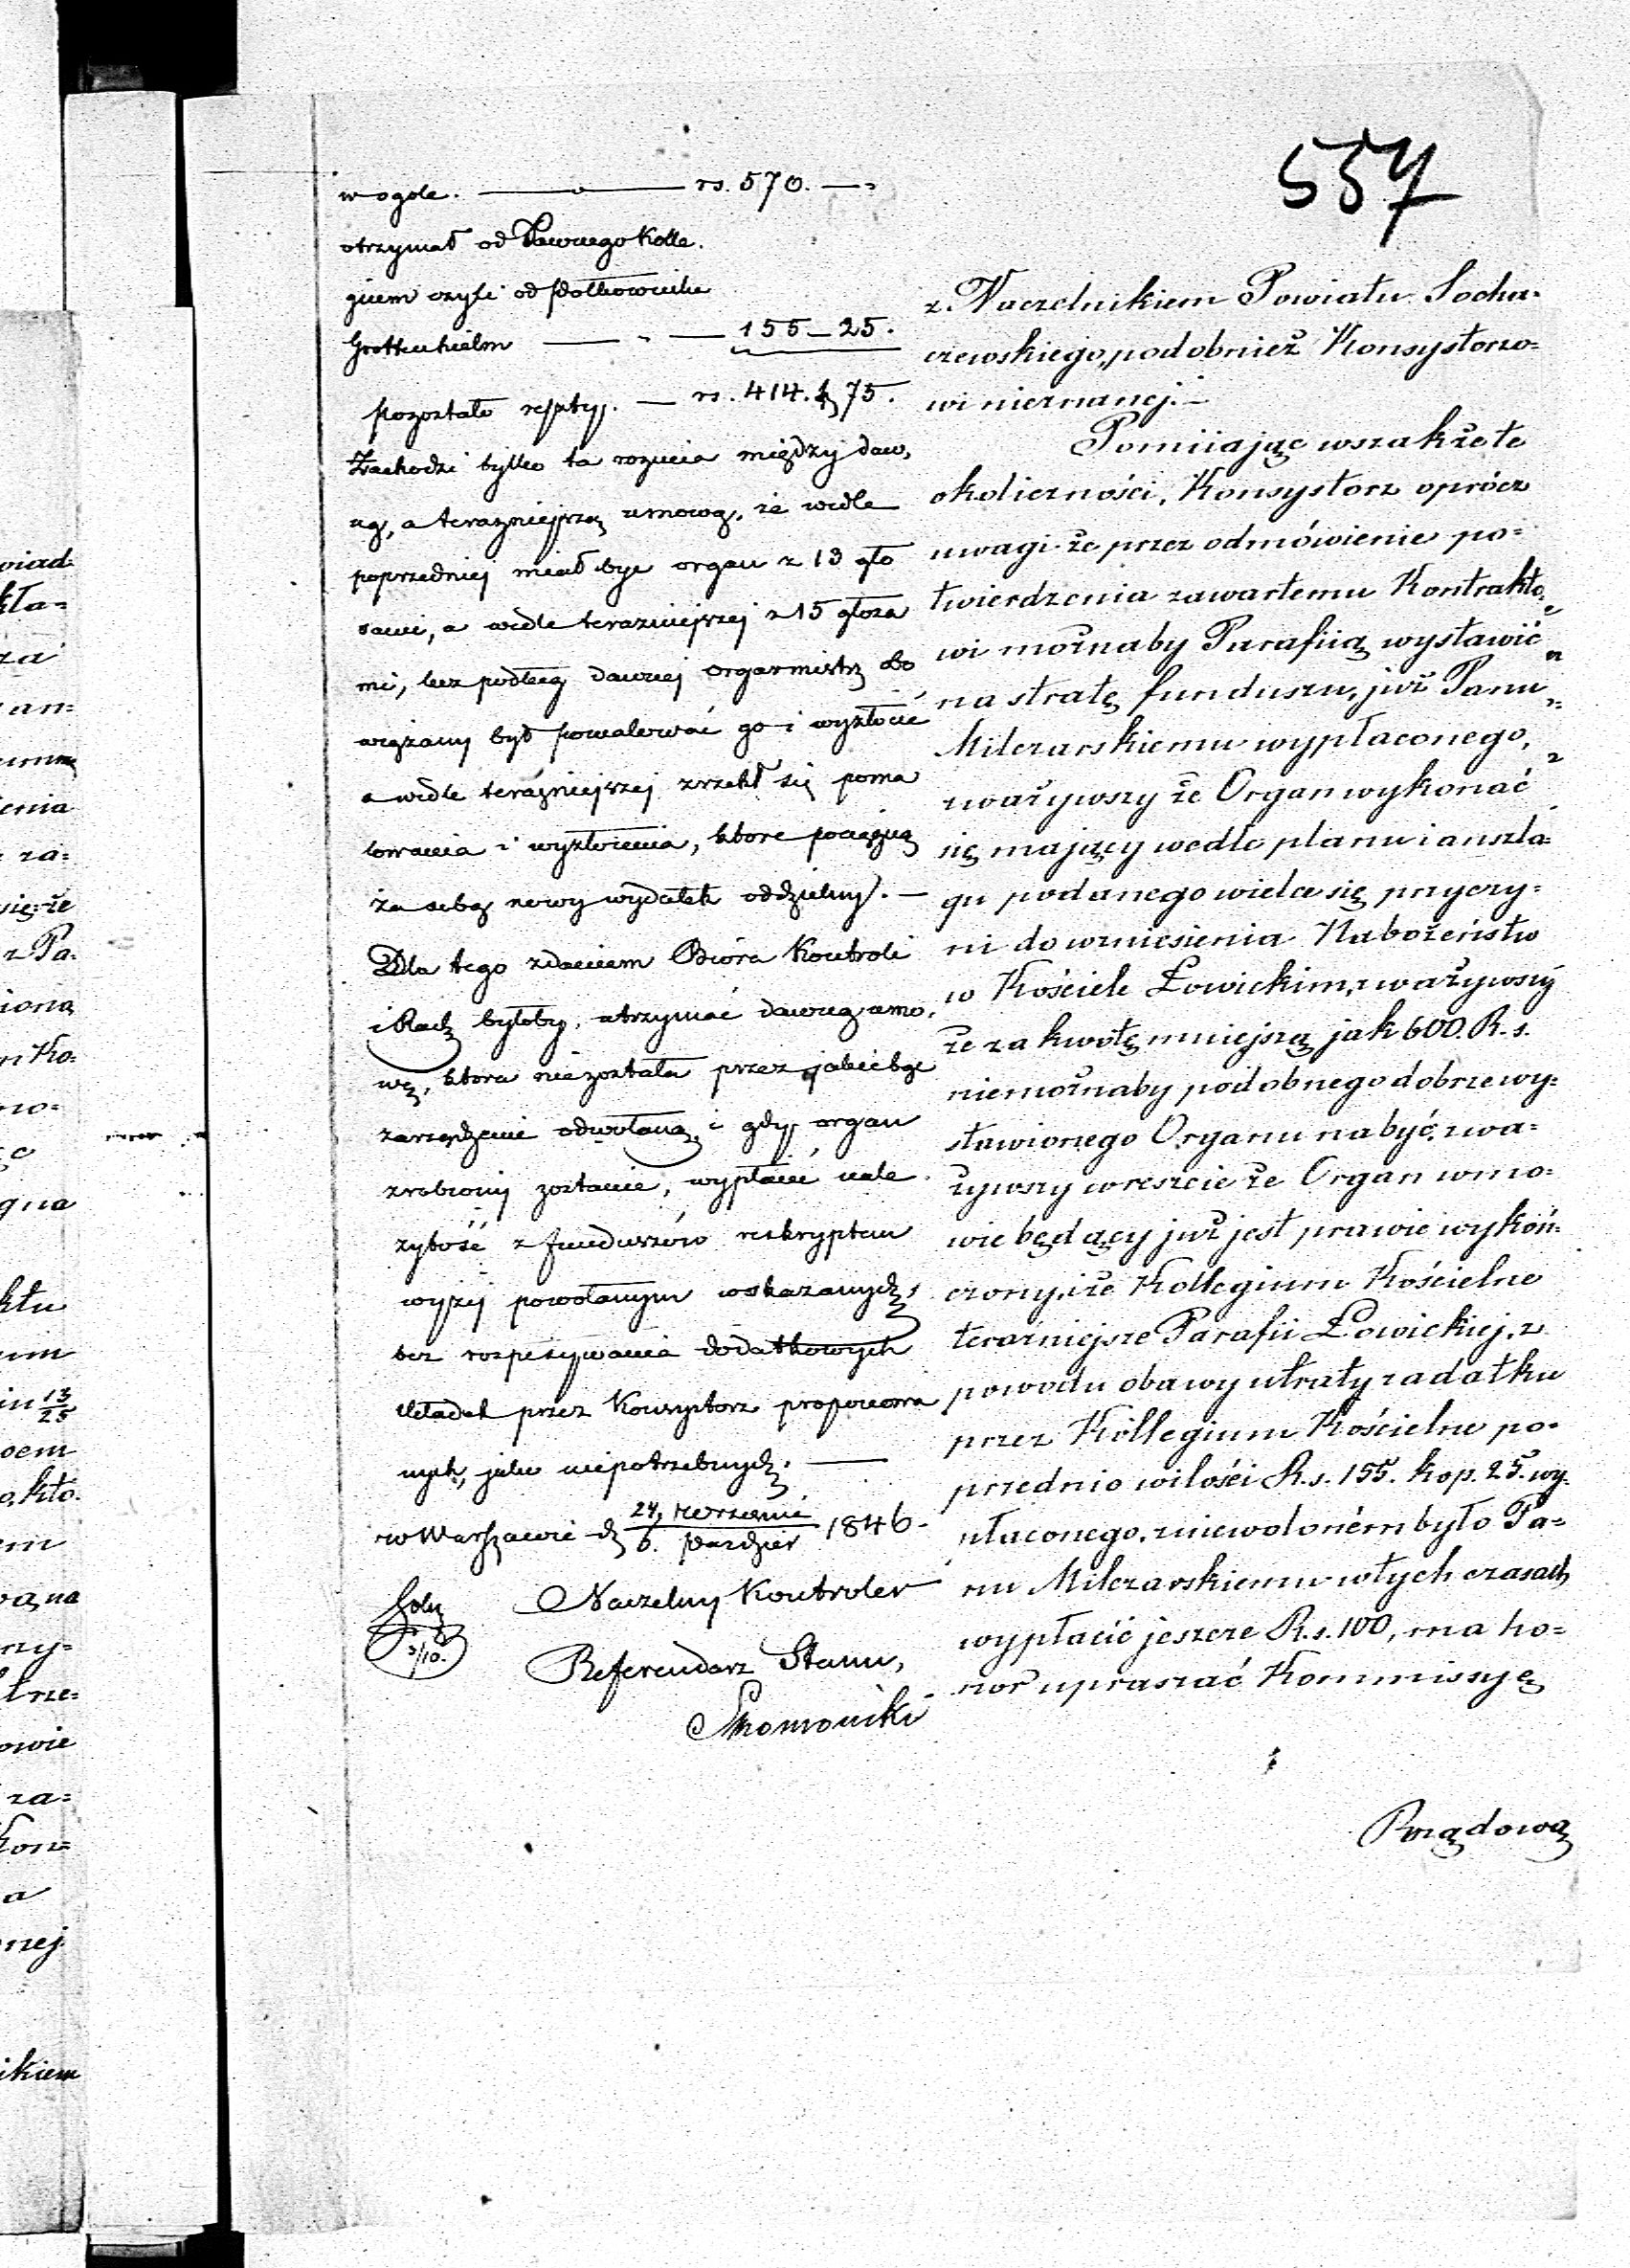 557
w ogole. rs. 570. —
otrzymał od Dawnego Kolle.
gium czyli od Półkownika
Grotthenhielm — 155 — 25.
pozostało rs. 414. k 75.
Zachodzi tylko ta rożnica między daw,
ną, a terazniejszą umową, że wedle
poprzedniej miał być organ z 13 gło
sami, a wedle terazniejszej z 15 głosa
mi, lecz podług dawnej Organmistrz obo
wiązany był powalować go i wyzłocić
a wedle teraźniejszej zrzekł się poma
lowania i wyzłocenia, ktore pociągną
za sobą nowy wydatek oddzielny. —
Dla tego zdaniem Biora Kontroli
i Rach byłoby, utrzymać dawną umo,
wę, ktora niezostała przez jakiebąć
zarządzenie odwołaną, i gdy organ
zrobiony zostanie, wypłacić nale
żytość z funduszów reskryptem
wyżej powołanym wskazanych,
bez rozpisywania dodatkowych
składek przez Konsystorz proponowa
nych, jako niepotrzebnych. —
w Warszawie d 24 Wrzesnia / 6. Pazdzier 1846.
Naczelny Kontroler
3/10.
Referendarz Stanu,
z Naczelnikiem Powiatu Socha=
czewskiego, podobnież Konsystorzo=
wi nieznanej. —
Pomiiając wszakże te
okoliczności, Konsystorz oprócz
uwagi że przez odmówienie po=
twierdzenia zawartemu Kontrakto,
wi możnaby Parafiią wystawić
na stratę funduszu, już Panu
Milczarskiemu wypłaconego,
zważywszy że Organ wykonać
się mający wedle planu i anszla=
gu podanego wiele się przyczy=
ni do wzniesienia Nabożeństw
w Kościele Łowickim, zważywszy
że za kwotę mniejszą jak 600. R. s.
niemożnaby podobnego dobrze wy=
stawionego Organu nabyć, zwa=
żywszy wreszcie że Organ w mo=
wie będący już jest prawie wykoń=
czony, i że Kollegium Kościelne
teraźniejsze Parafii Łowickiej, z
powodu obawy utraty zadatku
przez Kollegium Kościelne po=
przednio wilości R. s. 155. kop. 25. wy=
płaconego, zniewoloném było Pa=
nu Milczarskiemu w tych czasach
wypłacić jeszcze R. s. 100, ma ho=
nor upraszać Kommissyę
Rządową